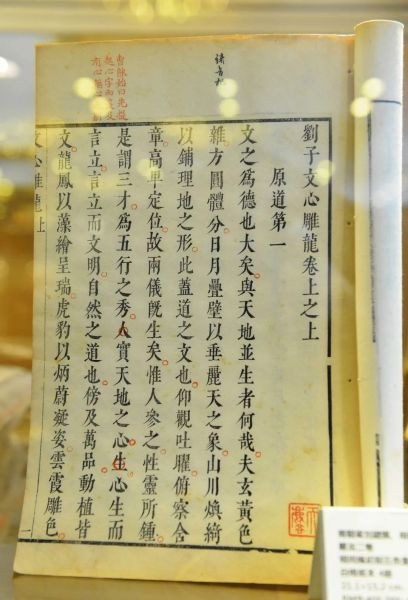 劉子文心雕龍卷上之上
原道第一
文之爲德也大矣與天地並生者何哉夫玄黃色
雜方圓體分日月疊壁以垂麗天之象山川煥綺
以鋪理地之形此蓋道之文也仰觀吐曜俯察含
章高卑定位故兩儀旣生矣惟人參之性靈所鍾
是謂三才爲五行之秀人實天地之心生心生而
言立言立而文明自然之道也傍及萬品動植皆
文龍鳳以藻繪呈瑞虎豹以炳蔚凝姿雲霞雕色
文心雕龍上 一
曹能始曰先提
起心字